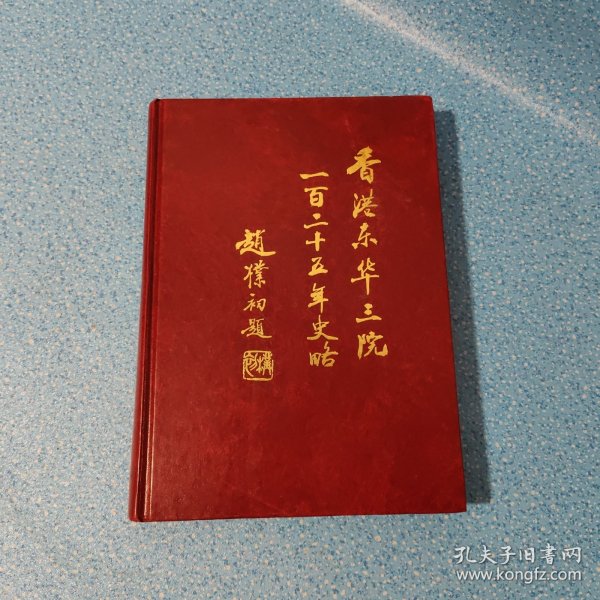 香港东华三院
一百二十五年史略
趙樸初題
孔夫子旧书网
www.kongfz.com